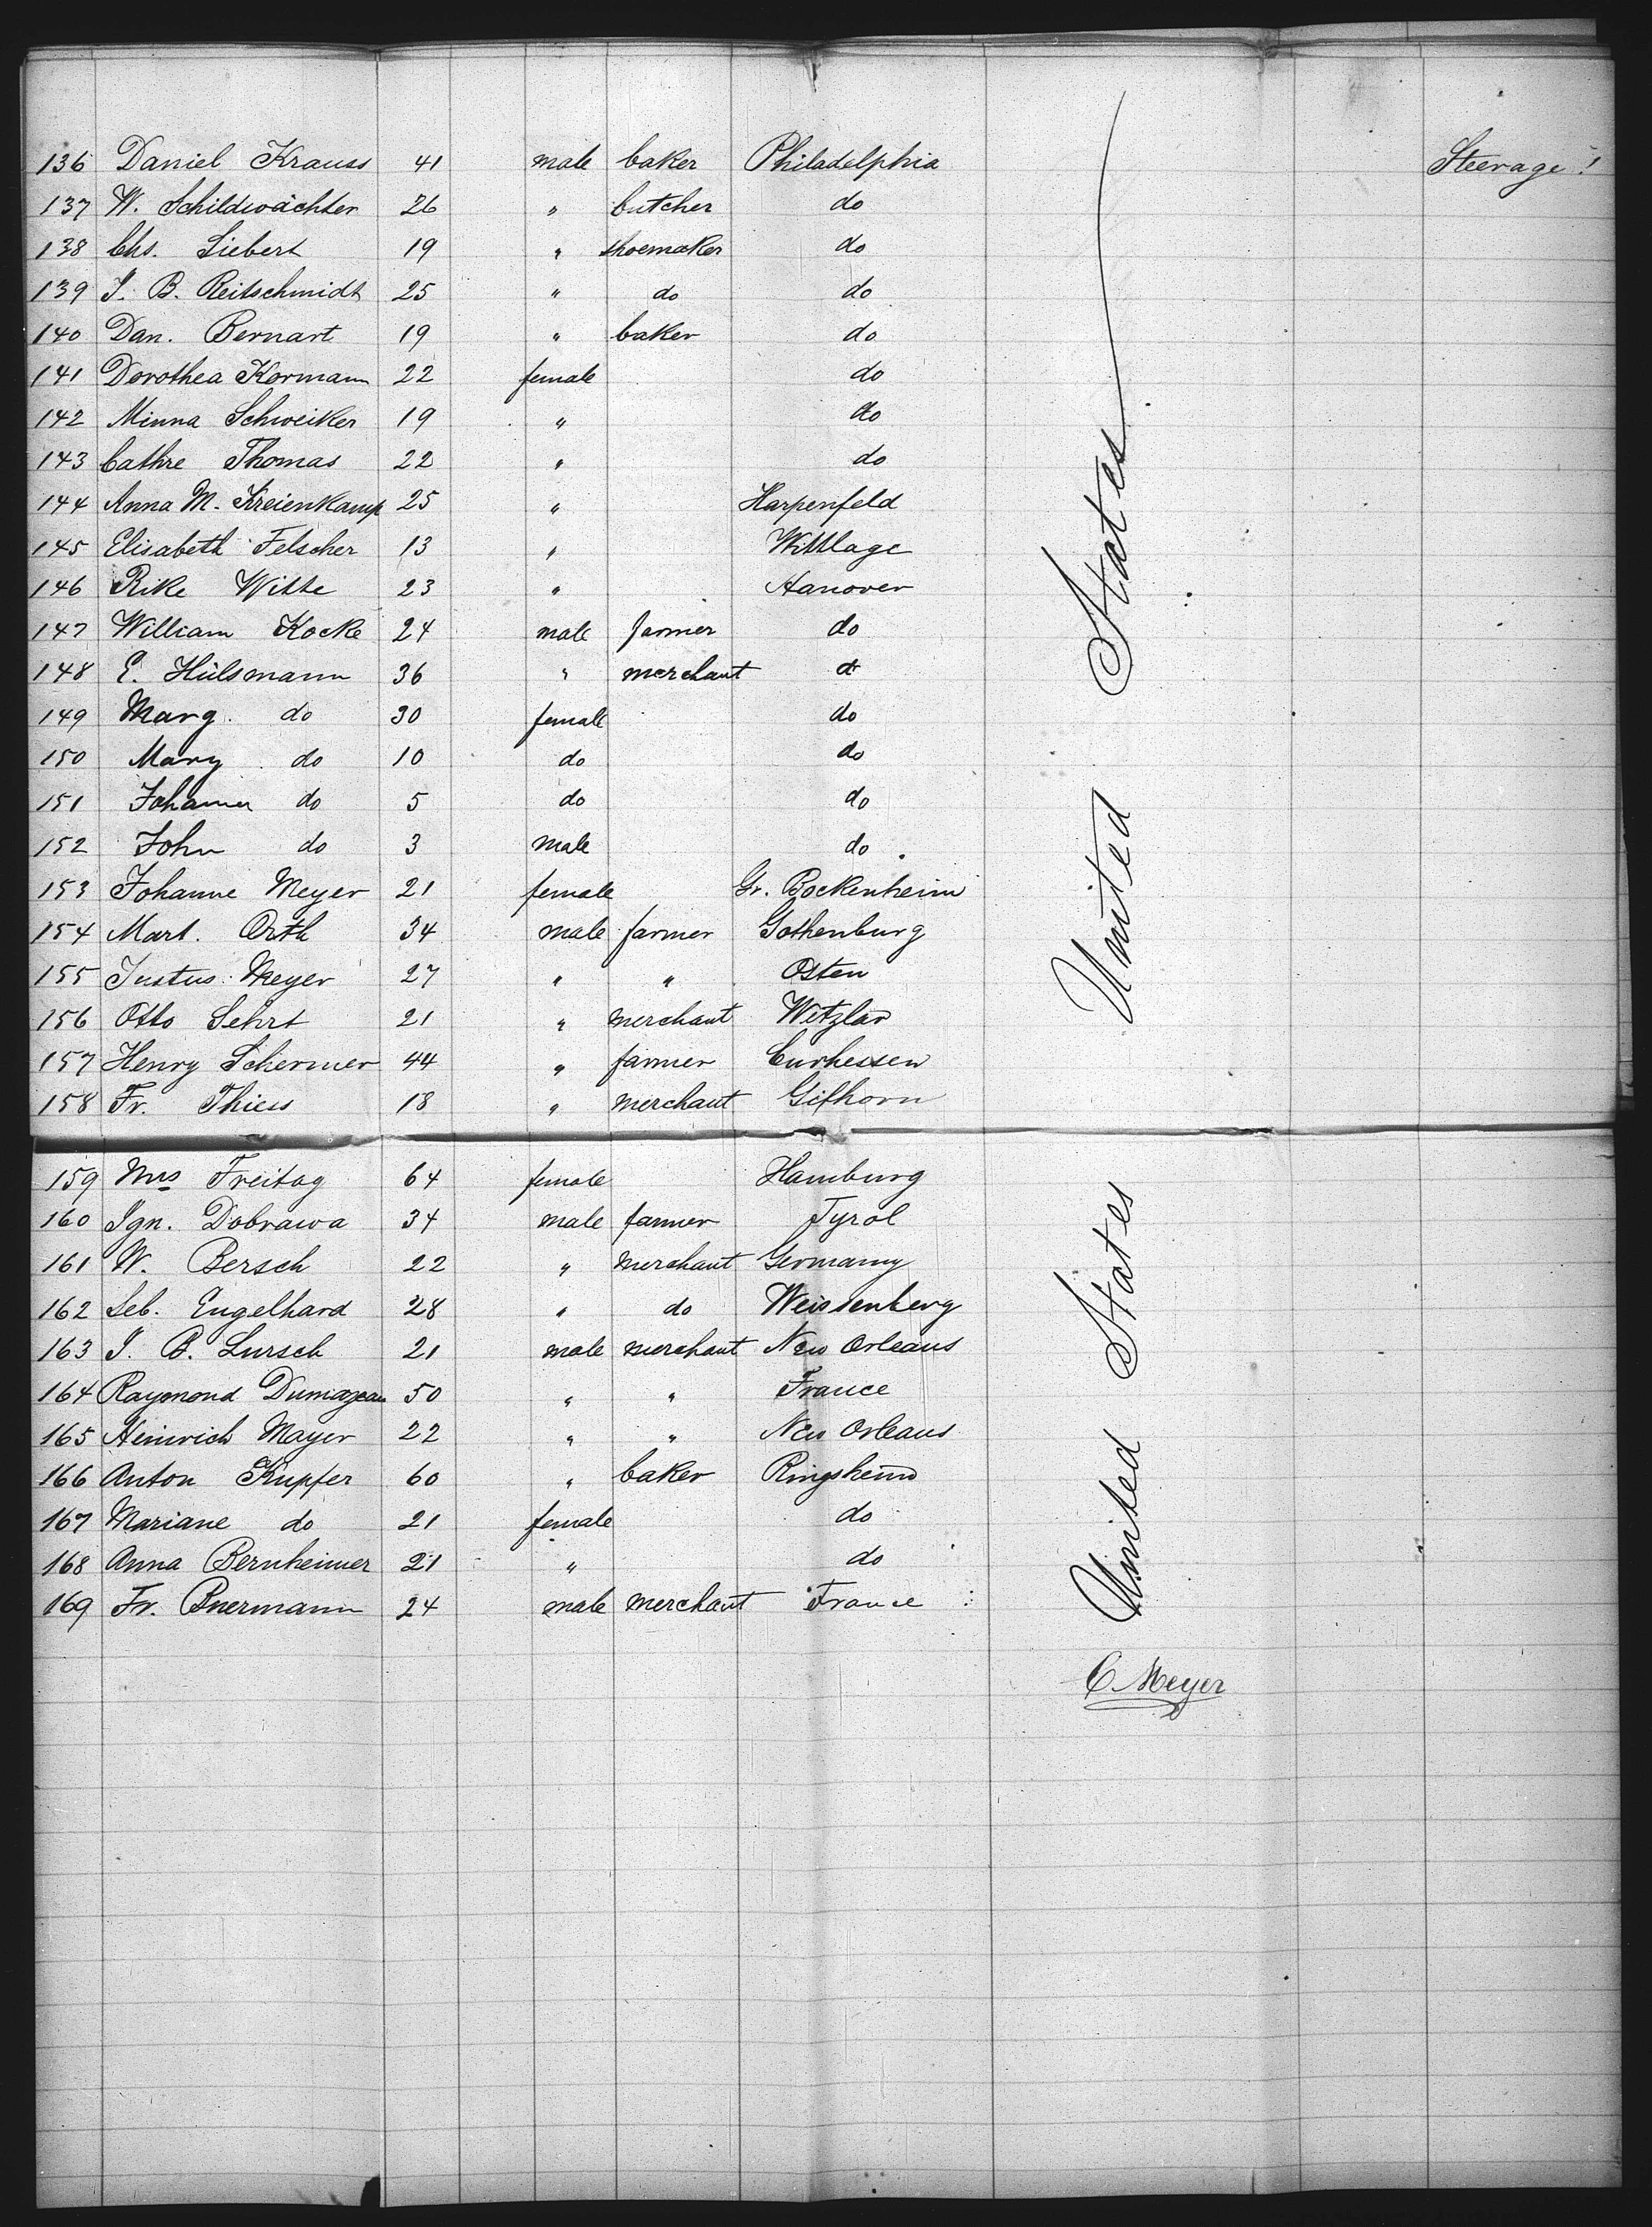 136 Daniel Krauss 41 male baker Philadelphia Steerage!
137 W. Schildwächter 26 " butcher do
138 Chs. Siebert 19 " shoemaker do
139 J. B. Reitschmidt 25 " do do
140 Dan. Bernart 19 " baker do
141 Dorothea Kormann 22 female do
142 Minna Schweiker 19 " do
143 Cathre Thomas 22 " do
144 Anna M. Kreienkamp 25 " Harpenfeld
145 Elisabeth Felscher 13 " Wittlage
146 Rike Witte 23 " Hanover
147 William Kocke 24 male farmer do
148 E. Hülsmann 36 " merchant do
149 Marg. do 30 female do
150 Mary do 10 do do
151 Johanna do 5 do do
152 John do 3 male do
153 Johanne Meyer 21 female Gr. Bockenheim
154 Mart. Orth 34 male farmer Gothenburg
155 Justus Meyer 27 " " Osten
156 Otto Sehrt 21 " merchant Wetzlar
157 Henry Schermer 44 " farmer Curhessen
158 Fr. Thies 18 " merchant Gifhorn
United States
159 Mrs Freitag 64 female Hamburg
160 Ign. Dobrawa 34 male farmer Tyrol
161 W. Bersch 22 " merchant Germany
162 Seb. Engelhard 28 " do Weissenberg
163 J. B. Lursch 21 male merchant New Orleans
164 Raymond Dumazeau 50 " " France
165 Heinrich Mayer 22 " " New Orleans
166 Anton Kupfer 60 " baker Ringsheim
167 Mariane do 21 female do
168 Anna Bernheimer 21 " do
169 Fr. Buermann 24 male merchant France
United States
C. Meyer